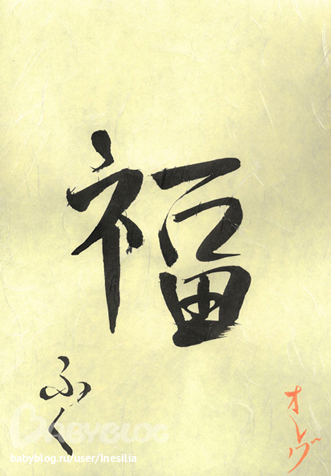 福
ふく
babyblog.ru/user/Inesilia